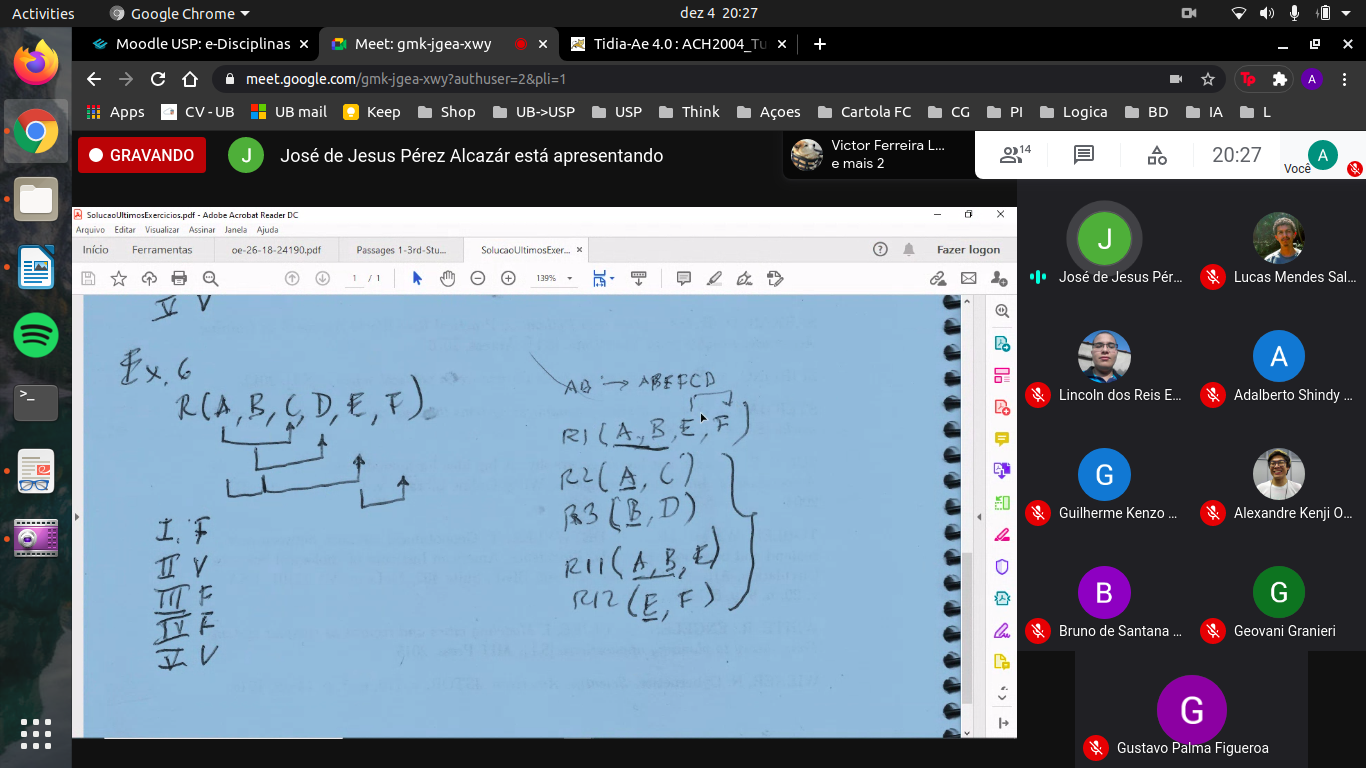 Activities Google Chrome dez 4 20:27
Moodle USP: e-Disciplinas Meet: gmk-jgea-xwy Tidia-Ae 4.0 : ACH2004_Tu
meet.google.com/gmk-jgea-xwy?authuser=2&pli=1
Apps CV - UB UB mail Keep Shop UB->USP USP Think Açoes Cartola FC CG PI Logica BD IA L
GRAVANDO J José de Jesus Pérez Alcazár está apresentando
Victor Ferreira L...
e mais 2
14
20:27
Você A
SolucaoUltimosExercicios.pdf - Adobe Acrobat Reader DC
Arquivo Editar Visualizar Assinar Janela Ajuda
Início Ferramentas oe-26-18-24190.pdf Passages 1-3rd-Stu... SolucaoUltimosExer... Fazer logon
1 / 1 139%
V V
Ex. 6
R(A, B, C, D, E, F)
I. F
II V
III F
IV F
V V
AB → ABEFCD
R1 (A, B, E, F)
R2 (A, C)
R3 (B, D)
R11 (A, B, E)
R12 (E, F)
J
José de Jesus Pér...
Lucas Mendes Sal...
Lincoln dos Reis E...
A
Adalberto Shindy ...
G
Guilherme Kenzo ...
Alexandre Kenji O...
B
Bruno de Santana ...
G
Geovani Granieri
G
Gustavo Palma Figueroa